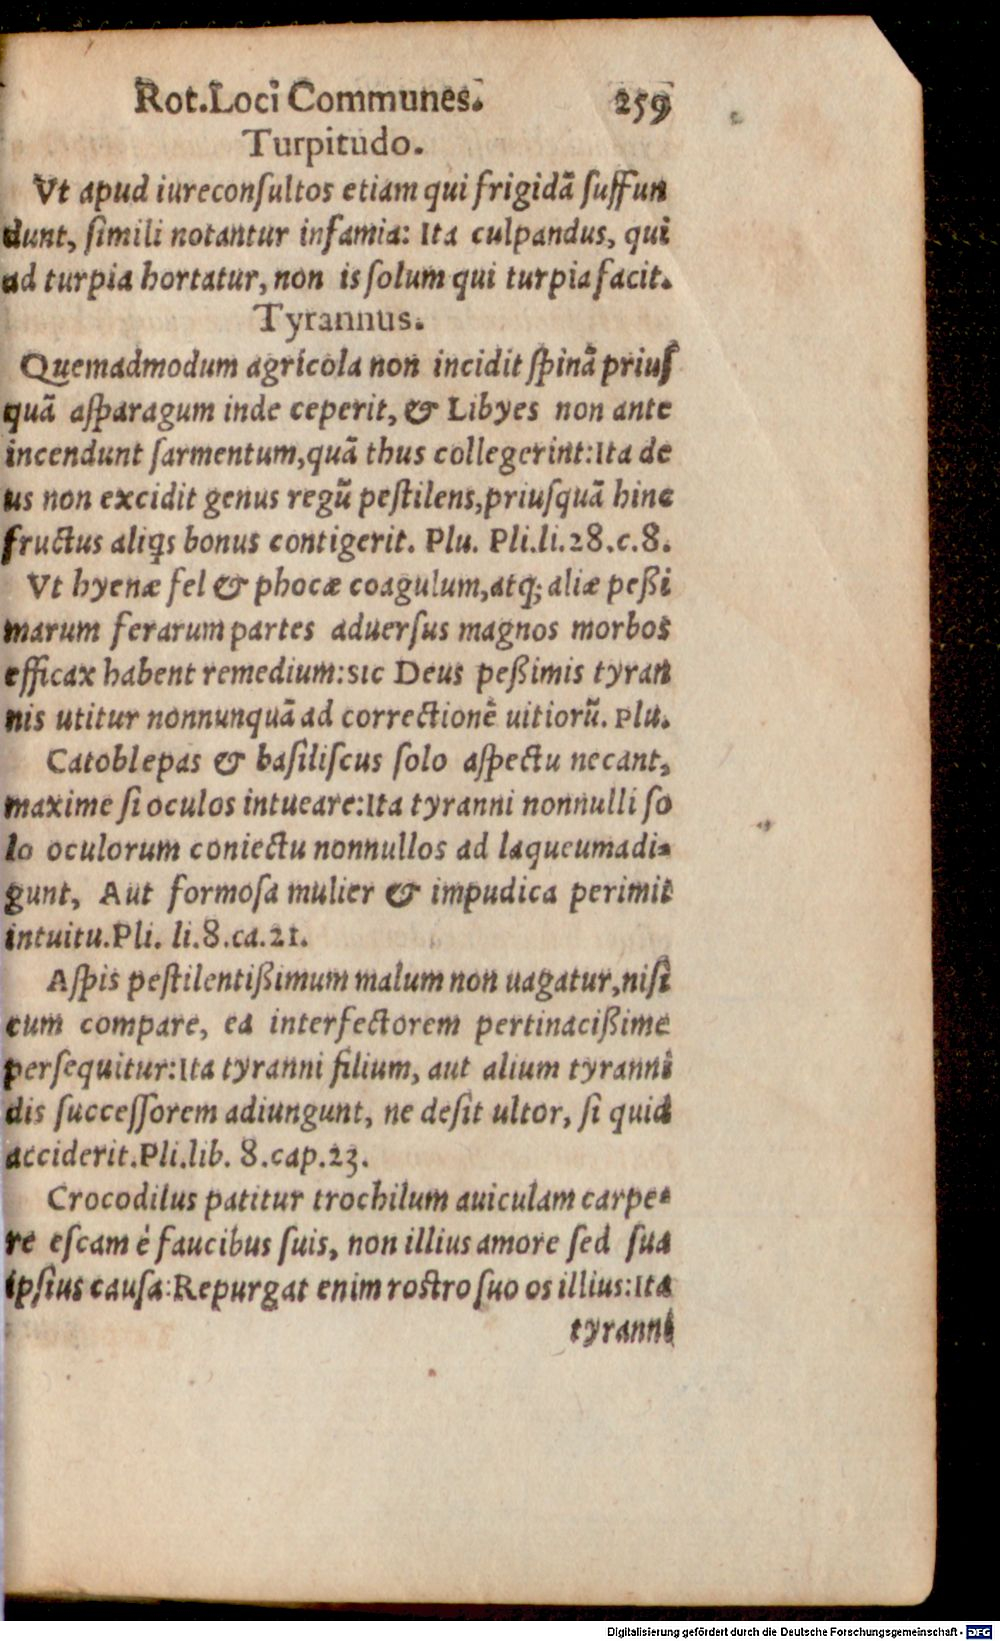 Rot. Loci Communes. 259
Turpitudo.
Vt apud iureconſultos etiam qui frigidā ſuffun
dunt, ſimili notantur infamia: Ita culpandus, qui
ad turpia hortatur, non is ſolum qui turpia facit.
Tyrannus.
Quemadmodum agricola non incidit ſpinā priuſ
quā aſparagum inde ceperit, & Libyes non ante
incendunt ſarmentum, quā thus collegerint: Ita de
us non excidit genus regū peſtilens, priuſquā hinc
fructus aliqs bonus contigerit. Plu. Pli. li. 28. c. 8.
Vt hyenæ fel & phocæ coagulum, atq; aliæ peßi
marum ferarum partes aduerſus magnos morbos
efficax habent remedium: sic Deus peßimis tyran
nis utitur nonnunquā ad correctionē uitiorū. Plu.
Catoblepas & baſiliſcus ſolo aſpectu necant,
maxime ſi oculos intueare: Ita tyranni nonnulli ſo
lo oculorum coniectu nonnullos ad laqueum adi-
gunt, Aut formoſa mulier & impudica perimit
intuitu. Pli. li. 8. ca. 21.
Aſpis peſtilentißimum malum non uagatur, niſi
cum compare, ea interfectorem pertinacißime
perſequitur: Ita tyranni filium, aut alium tyranni
dis ſucceſſorem adiungunt, ne deſit ultor, ſi quid
acciderit. Pli. lib. 8. cap. 23.
Crocodilus patitur trochilum auiculam carpe-
re eſcam è faucibus ſuis, non illius amore ſed ſua
ipſius cauſa: Repurgat enim roſtro ſuo os illius: Ita
tyranni
Digitalisierung gefördert durch die Deutsche Forschungsgemeinschaft - DFG